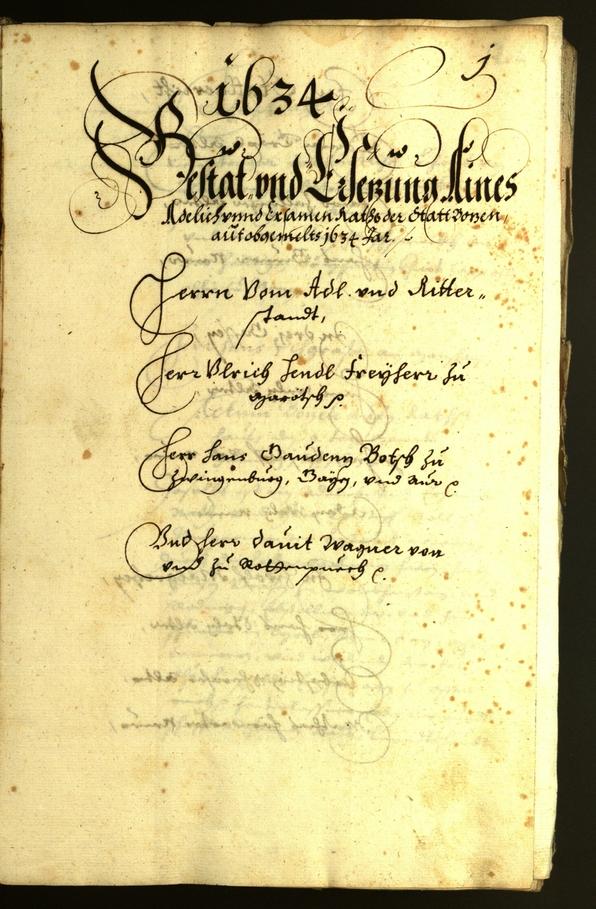 1
1634
Bestat und Ersetzung Aines
Adelich unnd Ersamen Raths der Statt Bozen,
auf obgemelts 1634 Jar.
Herrn Vom Adl. und Ritter-
standt,
Herr Ulrich Hendl Freyherr zu
Herr Hans Gaudenz Botsch zu
Zwingenburg, Gayen, und Aur
Und herr davit Wagner von
und zu Rottenpuech